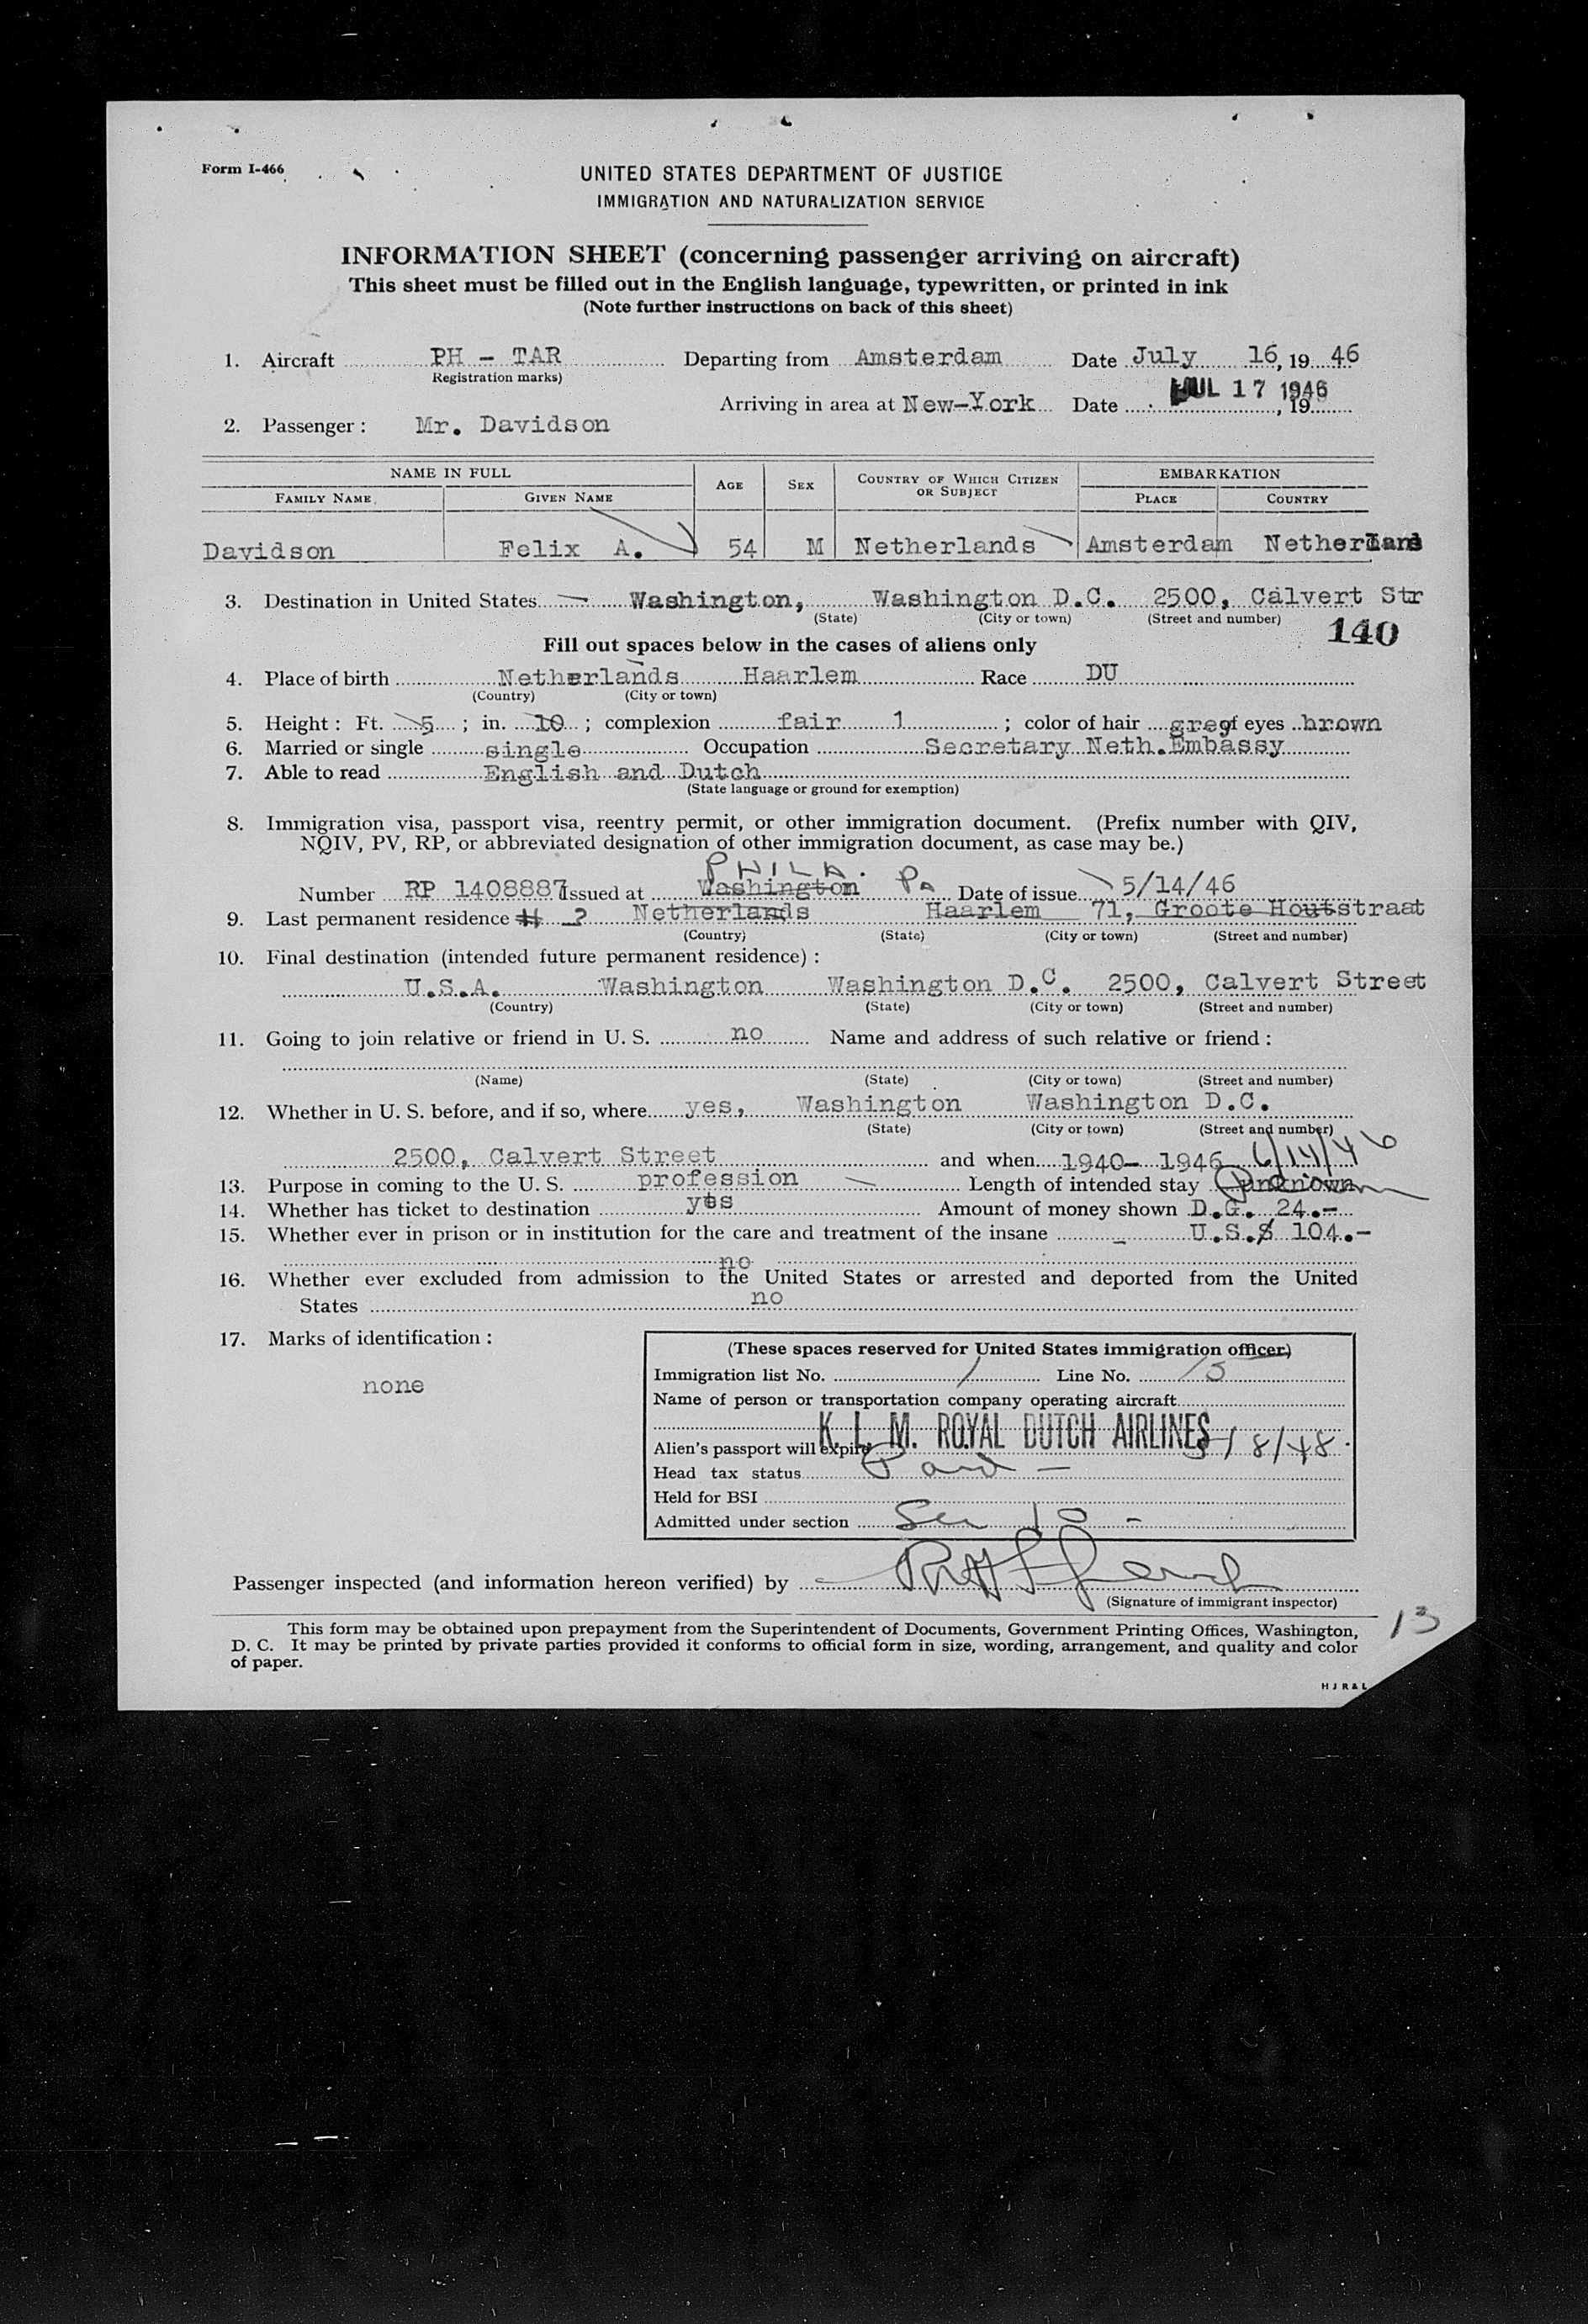 Form I-466
UNITED STATES DEPARTMENT OF JUSTICE
IMMIGRATION AND NATURALIZATION SERVICE
INFORMATION SHEET (concerning passenger arriving on aircraft)
This sheet must be filled out in the English language, typewritten, or printed in ink
(Note further instructions on back of this sheet)
1. Aircraft PH - TAR Departing from Amsterdam Date July 16, 19 46
(Registration marks)
JUL 17 1946
Arriving in area at New-York Date , 19
2. Passenger: Mr. Davidson
NAME IN FULL AGE SEX COUNTRY OF WHICH CITIZEN OR SUBJECT EMBARKATION
FAMILY NAME GIVEN NAME PLACE COUNTRY
Davidson Felix A. 54 M Netherlands Amsterdam Netherland
3. Destination in United States Washington, Washington D.C. 2500, Calvert Str
(State) (City or town) (Street and number)
140
Fill out spaces below in the cases of aliens only
4. Place of birth Netherlands Haarlem Race DU
(Country) (City or town)
5. Height: Ft. 5 ; in. 10 ; complexion fair 1 ; color of hair grey of eyes brown
6. Married or single single Occupation Secretary Neth.Embassy
7. Able to read English and Dutch
(State language or ground for exemption)
8. Immigration visa, passport visa, reentry permit, or other immigration document. (Prefix number with QIV,
NQIV, PV, RP, or abbreviated designation of other immigration document, as case may be.)
PHILA. Pa
Number RP 1408887 Issued at Washington Date of issue 5/14/46
9. Last permanent residence ? Netherlands Haarlem 71, Groote Houtstraat
(Country) (State) (City or town) (Street and number)
10. Final destination (intended future permanent residence):
U.S.A. Washington Washington D.C. 2500, Calvert Street
(Country) (State) (City or town) (Street and number)
11. Going to join relative or friend in U. S. no Name and address of such relative or friend:
(Name) (State) (City or town) (Street and number)
12. Whether in U. S. before, and if so, where yes, Washington Washington D.C.
(State) (City or town) (Street and number)
2500, Calvert Street and when 1940- 1946 6/14/46
13. Purpose in coming to the U. S. profession Length of intended stay unknown
14. Whether has ticket to destination yes Amount of money shown D.G. 24.-
15. Whether ever in prison or in institution for the care and treatment of the insane U.S.$ 104.-
no
16. Whether ever excluded from admission to the United States or arrested and deported from the United
States no
17. Marks of identification:
none
(These spaces reserved for United States immigration officer)
Immigration list No. 1 Line No. 13
Name of person or transportation company operating aircraft
K. L. M. ROYAL DUTCH AIRLINES
Alien's passport will expire /8/48.
Head tax status Paid -
Held for BSI
Admitted under section Sec 10 -
Passenger inspected (and information hereon verified) by
(Signature of immigrant inspector)
13
This form may be obtained upon prepayment from the Superintendent of Documents, Government Printing Offices, Washington,
D. C. It may be printed by private parties provided it conforms to official form in size, wording, arrangement, and quality and color
of paper.
H J R & L